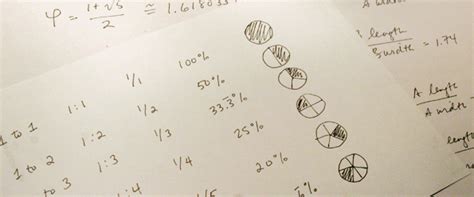 φ = 1+√5 / 2 ≅ 1.618033
A width
B length / B width = 1.74
A length / A width
length
1 to 1 1:1 1/1 100%
1 to 2 1:2 1/2 50%
to 3 1:3 1/3 33.3̅%
1:4 1/4 25%
1/5 20%